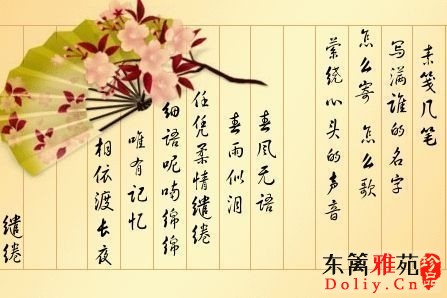 素笺几笔
写满谁的名字
怎么寄 怎么歌
萦绕心头的声音
春风无语
春雨似泪
任凭柔情缱绻
细语呢喃绵绵
唯有记忆
相依渡长夜
缱绻
东篱雅苑珍品
Doliy.Cn